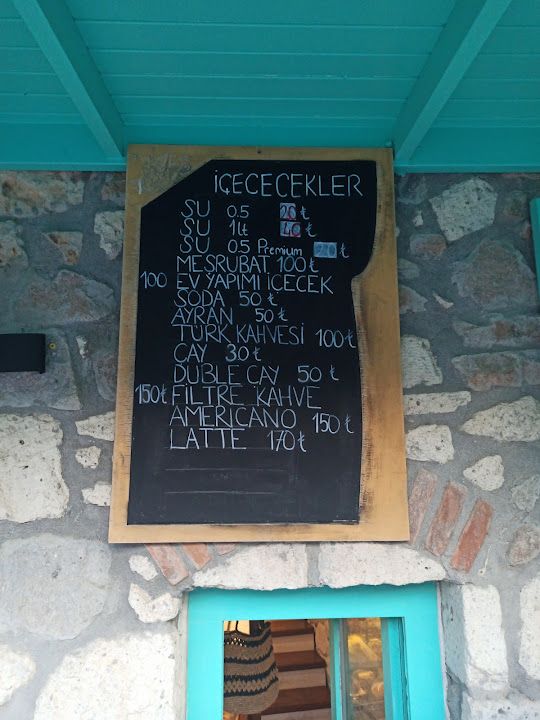 İÇECECEKLER
SU 0.5 20 ₺
SU 1 lt 40 ₺
SU 0.5 Premium ₺
MEŞRUBAT 100 ₺
100 EV YAPIMI İÇECEK
SODA 50 ₺
AYRAN 50 ₺
TÜRK KAHVESİ 100 ₺
ÇAY 30 ₺
DUBLE ÇAY 50 ₺
150 ₺ FİLTRE KAHVE
AMERICANO 150 ₺
LATTE 170 ₺